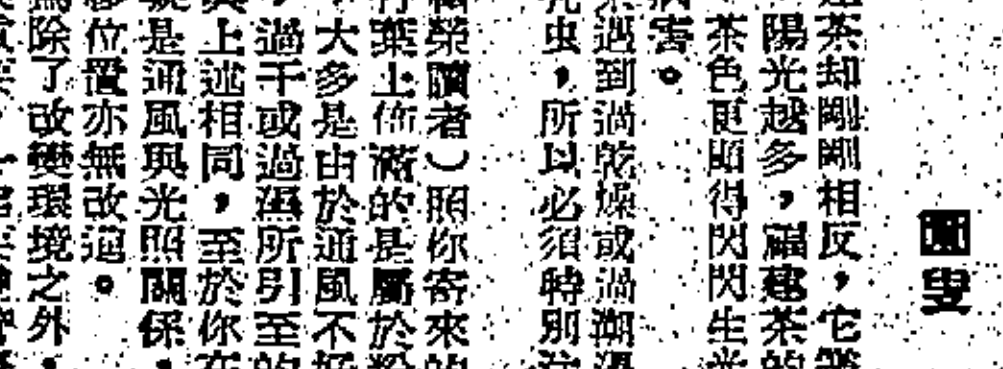 叟
茶却剛剛相反，它
陽光越多，福建茶的
茶色更顯得閃閃生光
病害。
遇到過乾燥或過潮濕
虫，所以必須特別注
榮讀者）照你寄來的
葉上佈滿的是屬於粉
，大多是由於通風不好
過干或過濕所引至的
與上述相同，至於你在
是通風與光照關係，
位置亦無改過。
除了改變環境之外，